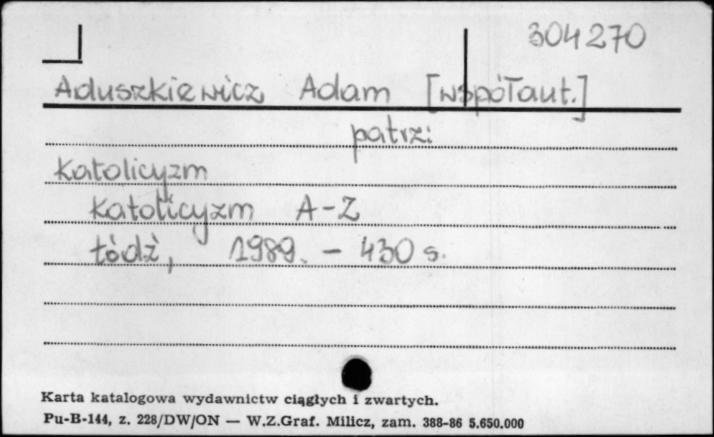 304270
Aduszkiewicz Adam [współaut.]
patrz:
Katolicyzm
Katolicyzm A-Z
Łódź, 1989. - 430 s.
Karta katalogowa wydawnictw ciągłych i zwartych.
Pu-B-144, z. 228/DW/ON — W.Z.Graf. Milicz, zam. 388-86 5.650.000